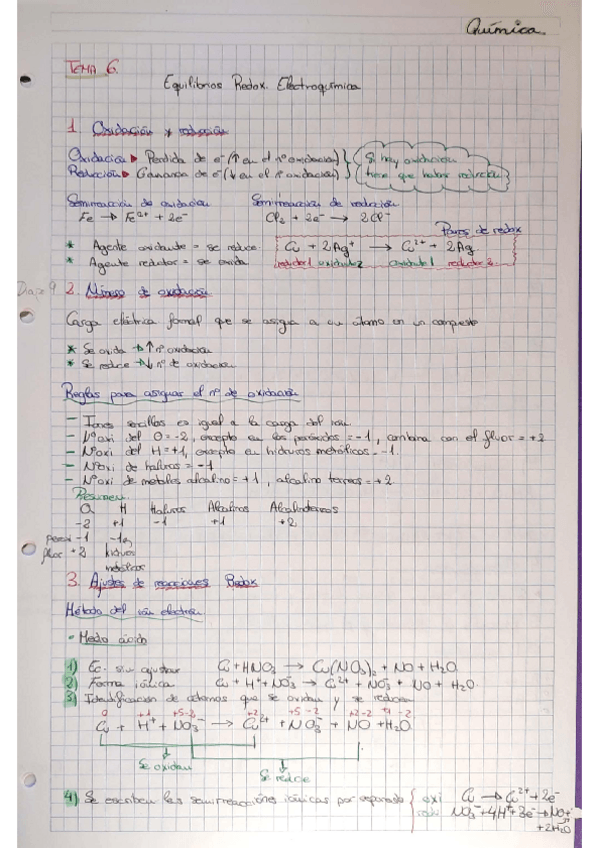 Química
TEMA 6.
Equilibrios Redox. Electroquímica
1. Oxidación y reducción
Oxidación ▸ Perdida de e⁻ (↑ en el nº oxidación) } Si hay oxidación
Reducción ▸ Ganancia de e⁻ (↓ en el nº oxidación) } tiene que haber reducción
Semirreacción de oxidación Semirreacción de reducción
Fe → Fe²⁺ + 2e⁻ Cl₂ + 2e⁻ → 2Cl⁻
Pares de redox
* Agente oxidante = se reduce Cu + 2Ag⁺ → Cu²⁺ + 2Ag
* Agente reductor = se oxida reductor1 oxidante2 oxidante1 reductor2
Diapo 9 2. Número de oxidación
Carga eléctrica formal que se asigna a un átomo en un compuesto
* Se oxida → ↑ nº oxidación
* Se reduce → ↓ nº de oxidación
Reglas para asignar el nº de oxidación
- Iones sencillos es igual a la carga del ión
- Nº oxi del O = -2, excepto en los peróxidos = -1, combina con el fluor = +2
- Nº oxi del H = +1, excepto en hidruros metálicos = -1.
- Nº oxi de haluros = -1
- Nº oxi de metales alcalino = +1, alcalino terreos = +2
Resumen
O H Haluros Alcalinos Alcalinoterreos
-2 +1 -1 +1 +2
peroxi -1 -1
fluor +2 hidruros
metálicos
3. Ajustes de reacciones Redox
Método del ión electrón
- Medio ácido
1) Ec. sin ajustar Cu + HNO₃ → Cu(NO₃)₂ + NO + H₂O
2) Forma iónica Cu + H⁺ + NO₃⁻ → Cu²⁺ + NO₃⁻ + NO + H₂O.
3) Identificación de átomos que se oxidan y se reducen
0 +1 +5-2 +2 +5-2 +2-2 +1 -2
Cu + H⁺ + NO₃⁻ → Cu²⁺ + NO₃⁻ + NO + H₂O
Se oxidan
Se reduce
4) Se escriben las semirreacciones iónicas por separado { oxi Cu → Cu²⁺ + 2e⁻
redu NO₃⁻ + 4H⁺ + 3e⁻ → NO +
+ 2H₂O